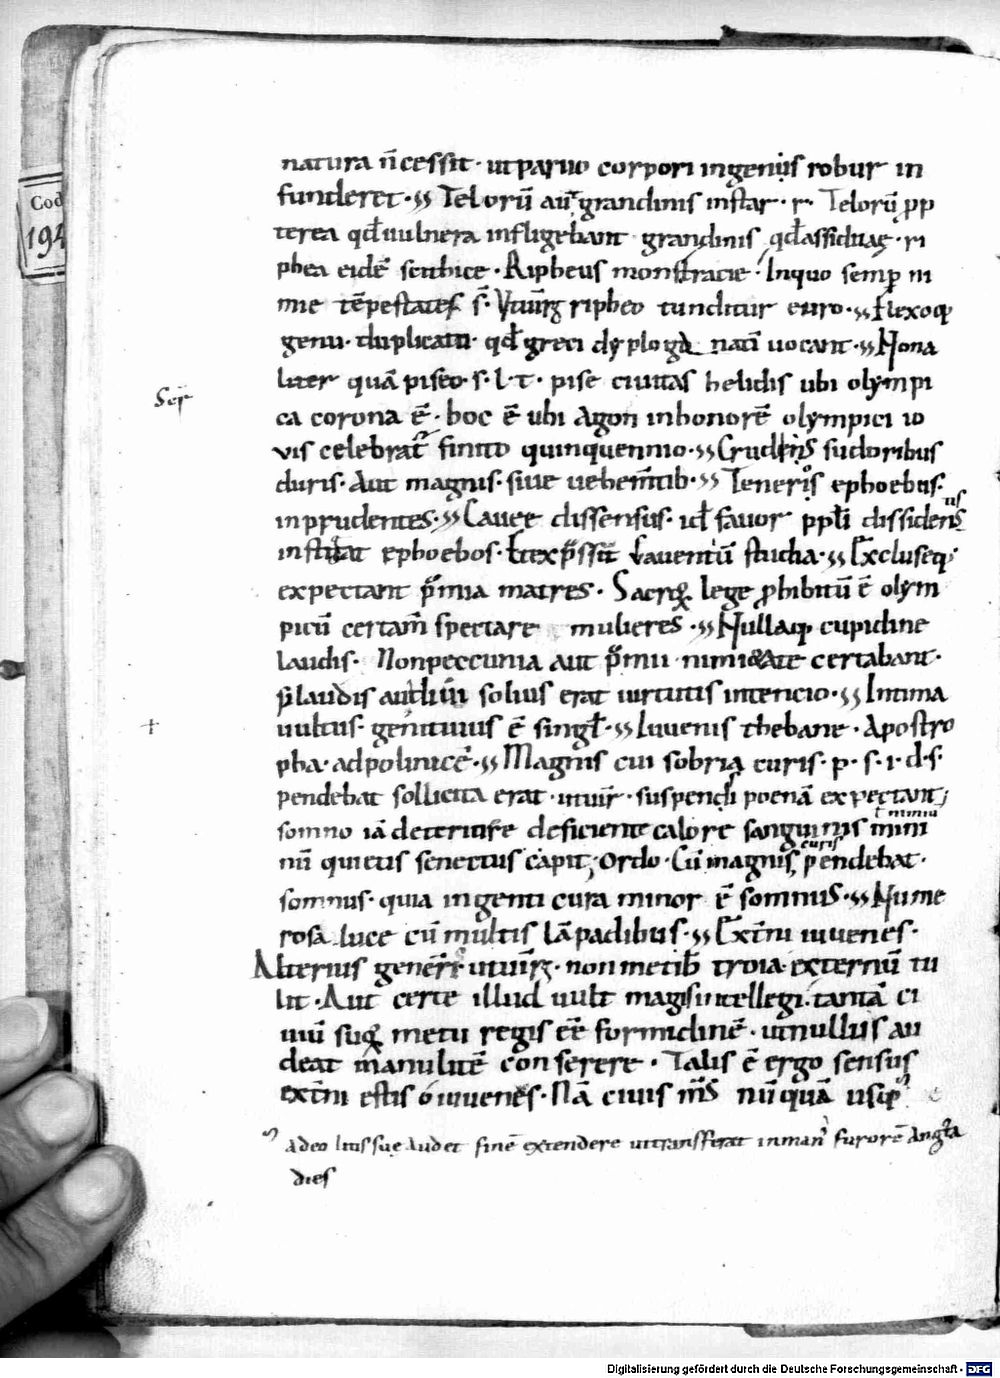 Cod
194
natura n̄ cessit · ut paruo corpori ingenijs robur in
funderet ·,, Telorū aut̄ grandinis instar · r· Telorū ꝓp
terea qđ uulnera infligebant grandinis qđ assiduae · ri
phea eidē scithice · Ripheus mons tracie · In quo semꝑ ni
mie tēpestates s̄. ripheo tunditur euro ·,, flexoq;
genu · duplicatū · qđ greci dyplogā uocant ·,, Non a
liter quā piseo · s · l · t · pise ciuitas helidis ubi olympi
ca corona ē · hoc ē ubi agon in honorē olympici io
vis celebrat̄ finito quinquennio ·,, Crudis sudoribus
duris · Aut magnis · siue uehem̄tib · ,, Teneris ephoebus ·
inprudentes ·,, Cauee dissensus · id fauor ppłi
ephoebos · fauentiū studia ·,, Excluseq;
expectant p̄mia matres · Sacroꝝ lege ꝓhibitū ē olym
picū certam̄ spectare mulieres ·,, Nullaq; cupidine
laudis · Non peccunia aut p̄mii certabant ·
laudis solius erat uirtutis intencio ·,, Intima
uultus · genitiuus ē singł ·,, Iuuenis thebane · Apostro
pha · ad polinicē ·,, Magnis cui sobria curis · p · s · i · d · s ·
pendebat sollicita erat · suspendi poenā expectant
somno iā deficiente calore sanguinis mini
t nimiū
mū quietis senectus capit; Ordo · Cū magnis pendebat ·
curis
somnus · quia ingenti cura minor ē somnus ·,, Nume
rosa luce cū multis lāpadibus ·,, Ext̄ni iuuenes ·
Alterius geneř · troia externū tu
lit · Aut certe illud uult magis intellegi · tantā ci
uiū suoꝝ metu regis eē formidinē · ut nullus au
deat manu litē conserere · Talis ē ergo sensus
ext̄ni estis ó iuuenes · Nā ciuis m̄s nūquā
adeo luis sue audet finē extendere furorē
dies
Digitalisierung gefördert durch die Deutsche Forschungsgemeinschaft - DFG